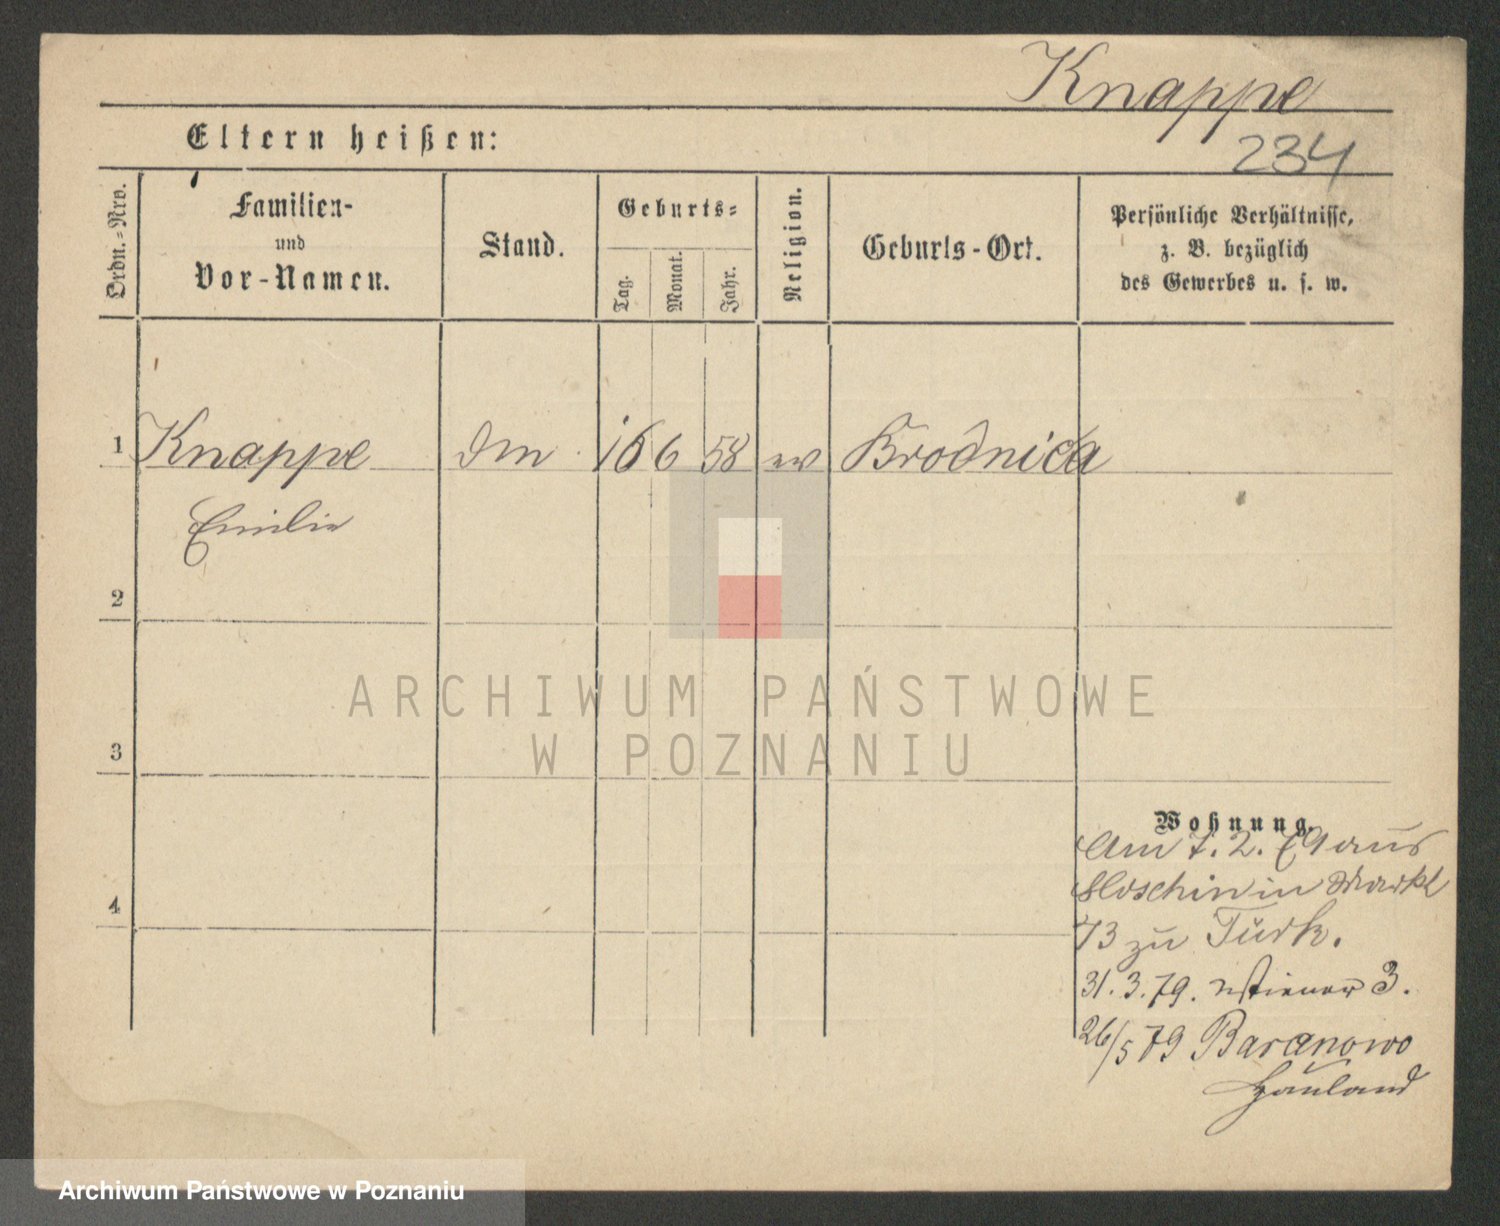 Knappe
234
Eltern heißen:
Ordn.-Nro.
Familien-
und
Vor-Namen.
Stand.
Geburts-
Tag.
Monat.
Jahr.
Religion.
Geburts-Ort.
Persönliche Verhältnisse,
z. B. bezüglich
des Gewerbes u. s. w.
1 Knappe 16 6 58 ev Brodnica
Emilie
2
3
4
Wohnung.
Am 7. 2. 79 aus
in Markt
73 zu Türk.
31. 3. 79. 3.
26/5 79 Baranowo
Hauland
ARCHIWUM PAŃSTWOWE
W POZNANIU
Archiwum Państwowe w Poznaniu